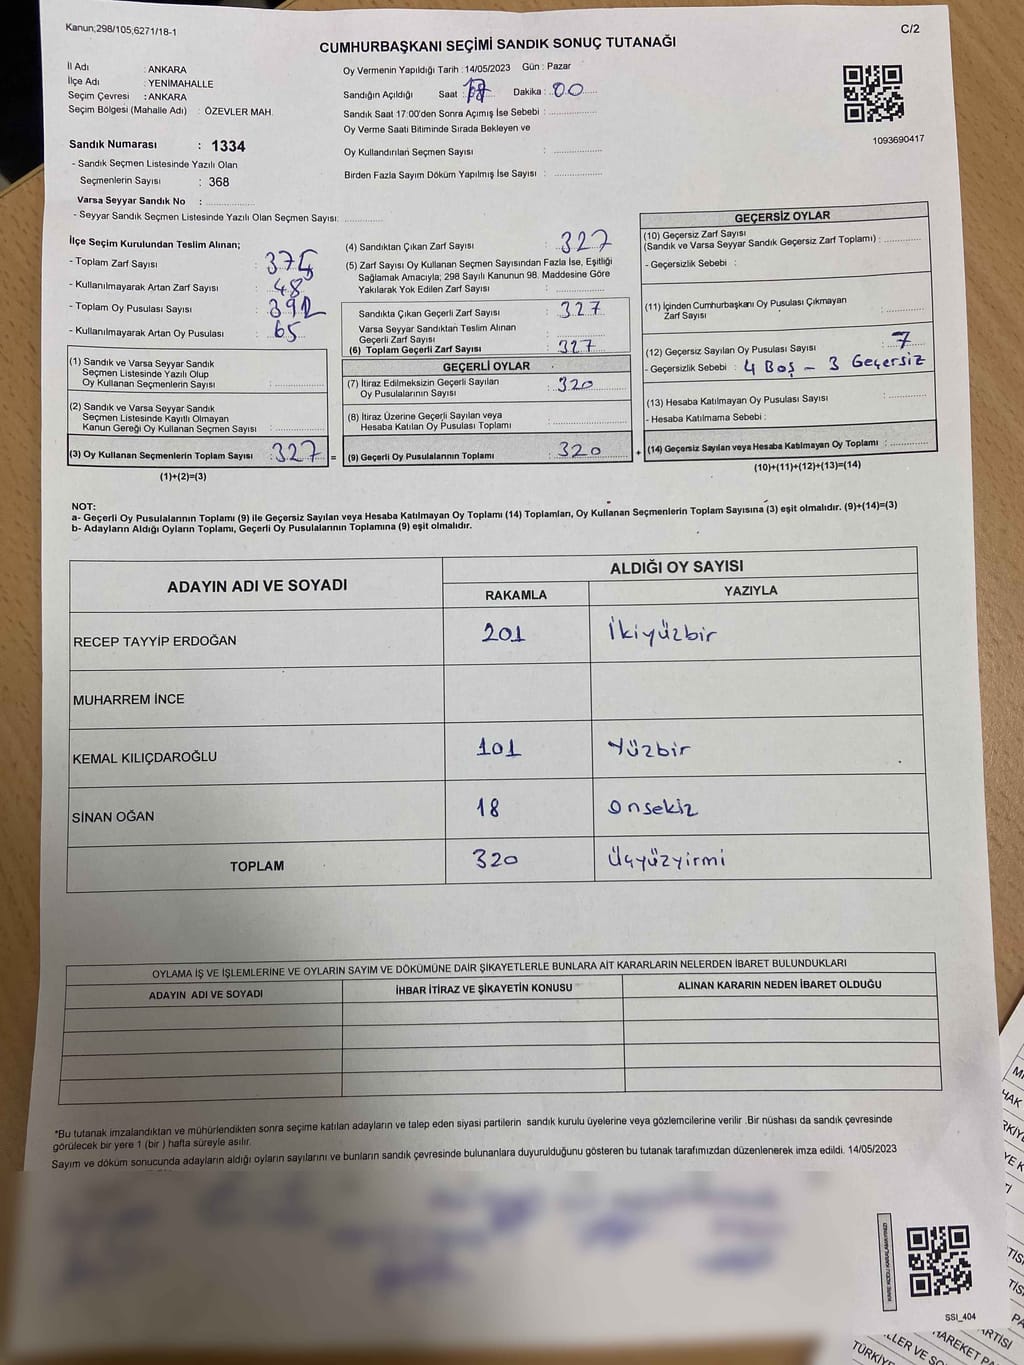 Kanun;298/105,6271/18-1
C/2
CUMHURBAŞKANI SEÇİMİ SANDIK SONUÇ TUTANAĞI
İl Adı : ANKARA
İlçe Adı : YENİMAHALLE
Seçim Çevresi : ANKARA
Seçim Bölgesi (Mahalle Adı) : ÖZEVLER MAH.
Oy Vermenin Yapıldığı Tarih : 14/05/2023 Gün : Pazar
Sandığın Açıldığı Saat : Dakika : 00
Sandık Saat 17:00'den Sonra Açımış İse Sebebi :
Oy Verme Saati Bitiminde Sırada Bekleyen ve
Oy Kullandırılan Seçmen Sayısı :
Birden Fazla Sayım Döküm Yapılmış İse Sayısı :
1093690417
Sandık Numarası : 1334
- Sandık Seçmen Listesinde Yazılı Olan
Seçmenlerin Sayısı : 368
Varsa Seyyar Sandık No :
- Seyyar Sandık Seçmen Listesinde Yazılı Olan Seçmen Sayısı:
İlçe Seçim Kurulundan Teslim Alınan;
- Toplam Zarf Sayısı : 375
- Kullanılmayarak Artan Zarf Sayısı : 48
- Toplam Oy Pusulası Sayısı : 392
- Kullanılmayarak Artan Oy Pusulası : 65
(1) Sandık ve Varsa Seyyar Sandık
Seçmen Listesinde Yazılı Olup
Oy Kullanan Seçmenlerin Sayısı :
(2) Sandık ve Varsa Seyyar Sandık
Seçmen Listesinde Kayıtlı Olmayan
Kanun Gereği Oy Kullanan Seçmen Sayısı :
(3) Oy Kullanan Seçmenlerin Toplam Sayısı : 327 =
(1)+(2)=(3)
(4) Sandıktan Çıkan Zarf Sayısı : 327
(5) Zarf Sayısı Oy Kullanan Seçmen Sayısından Fazla İse, Eşitliği
Sağlamak Amacıyla; 298 Sayılı Kanunun 98. Maddesine Göre
Yakılarak Yok Edilen Zarf Sayısı :
Sandıkta Çıkan Geçerli Zarf Sayısı : 327
Varsa Seyyar Sandıktan Teslim Alınan
Geçerli Zarf Sayısı :
(6) Toplam Geçerli Zarf Sayısı : 327
GEÇERLİ OYLAR
(7) İtiraz Edilmeksizin Geçerli Sayılan
Oy Pusulalarının Sayısı : 320
(8) İtiraz Üzerine Geçerli Sayılan veya
Hesaba Katılan Oy Pusulası Toplamı :
(9) Geçerli Oy Pusulalarının Toplamı : 320 +
GEÇERSİZ OYLAR
(10) Geçersiz Zarf Sayısı
(Sandık ve Varsa Seyyar Sandık Geçersiz Zarf Toplamı) :
- Geçersizlik Sebebi :
(11) İçinden Cumhurbaşkanı Oy Pusulası Çıkmayan
Zarf Sayısı :
(12) Geçersiz Sayılan Oy Pusulası Sayısı : 7
- Geçersizlik Sebebi : 4 Boş - 3 Geçersiz
(13) Hesaba Katılmayan Oy Pusulası Sayısı :
- Hesaba Katılmama Sebebi :
(14) Geçersiz Sayılan veya Hesaba Katılmayan Oy Toplamı :
(10)+(11)+(12)+(13)=(14)
NOT:
a- Geçerli Oy Pusulalarının Toplamı (9) ile Geçersiz Sayılan veya Hesaba Katılmayan Oy Toplamı (14) Toplamları, Oy Kullanan Seçmenlerin Toplam Sayısına (3) eşit olmalıdır. (9)+(14)=(3)
b- Adayların Aldığı Oyların Toplamı, Geçerli Oy Pusulalarının Toplamına (9) eşit olmalıdır.
ADAYIN ADI VE SOYADI
ALDIĞI OY SAYISI
RAKAMLA YAZIYLA
RECEP TAYYİP ERDOĞAN 201 İkiyüzbir
MUHARREM İNCE
KEMAL KILIÇDAROĞLU 101 Yüzbir
SİNAN OĞAN 18 Onsekiz
TOPLAM 320 Üçyüzyirmi
OYLAMA İŞ VE İŞLEMLERİNE VE OYLARIN SAYIM VE DÖKÜMÜNE DAİR ŞİKAYETLERLE BUNLARA AİT KARARLARIN NELERDEN İBARET BULUNDUKLARI
ADAYIN ADI VE SOYADI İHBAR İTİRAZ VE ŞİKAYETİN KONUSU ALINAN KARARIN NEDEN İBARET OLDUĞU
*Bu tutanak imzalandıktan ve mühürlendikten sonra seçime katılan adayların ve talep eden siyasi partilerin sandık kurulu üyelerine veya gözlemcilerine verilir .Bir nüshası da sandık çevresinde
görülecek bir yere 1 (bir ) hafta süreyle asılır.
Sayım ve döküm sonucunda adayların aldığı oyların sayılarını ve bunların sandık çevresinde bulunanlara duyurulduğunu gösteren bu tutanak tarafımızdan düzenlenerek imza edildi. 14/05/2023
SSI_404
HAK
ARTİSİ
HAREKET PA
LLER VE
TÜRKİYE